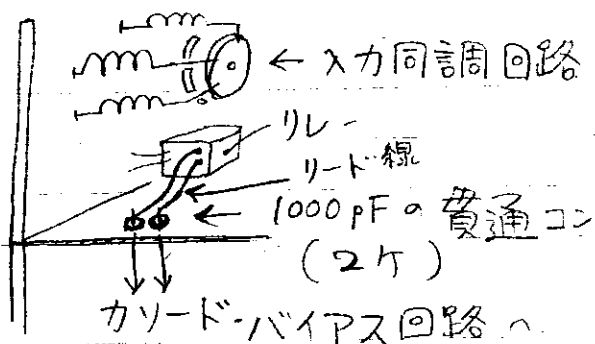 ← 入力同調回路
リレー
リード線
← 1000pFの貫通コン
(2ケ)
カソード・バイアス回路へ